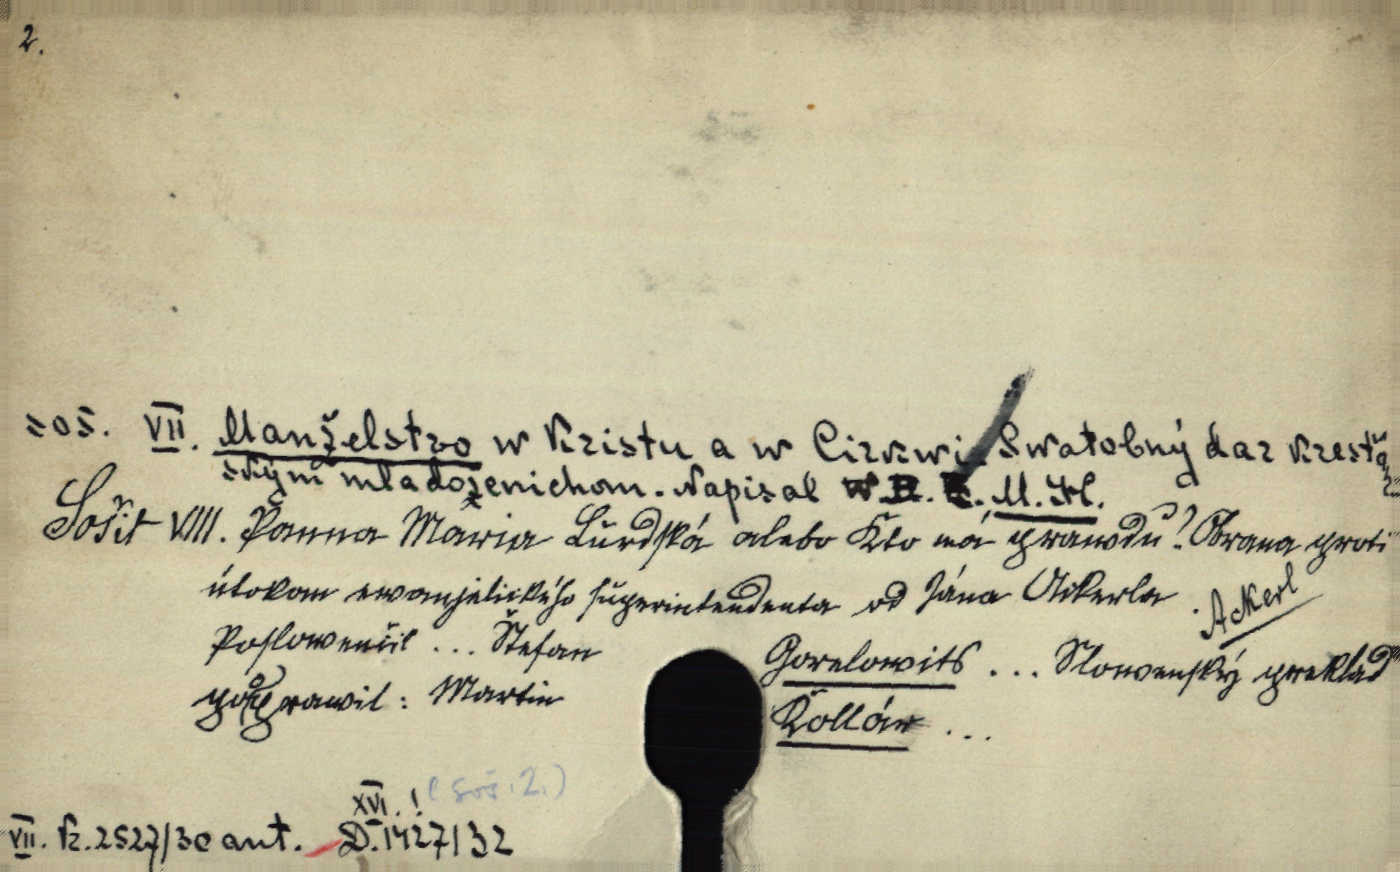 2.
soš. VII. Manželstvo w Kristu a w Cirkwi. Swatobný dar krest'
ským mladoženichom. Napísal M. H.
Sošit VIII. Panna Mária Lurdská alebo Kto má prawdu? Obrana proti
útokom ewanjelického superintendenta od Jána Ackerla. Ackerl
Poslowenčil ... Štefan Gorelowits ... Slowenský preklad
poopravil: Martin Kollár ...
XVI.! (soš. 2.)
VII. K. 2527/30 ant. D. 1427/32